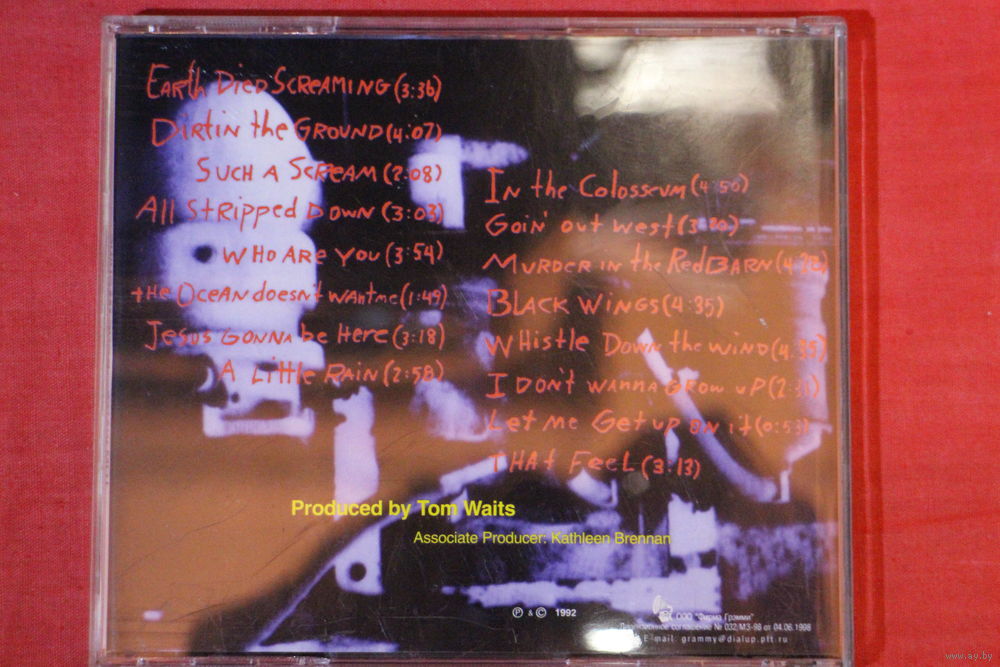 Earth Died Screaming (3:36)
Dirt in the Ground (4:07)
Such a Scream (2:08)
All Stripped Down (3:03)
Who Are You (3:54)
the Ocean doesn't want me (1:49)
Jesus Gonna be Here (3:18)
A Little Rain (2:58)
In the Colosseum (4:50)
Goin' out west (3:20)
Murder in the Red Barn
Black Wings (4:35)
Whistle Down the Wind (4:35)
I Don't wanna Grow uP (2:31)
Let me Get up on it (0:53)
that Feel (3:13)
Produced by Tom Waits
Associate Producer: Kathleen Brennan
Ⓟ & © 1992
ООО "Фирма Грэмми"
Лицензионное соглашение № 032/МЗ-98 от 04.06.1998
E-mail: grammy@dialup.ptt.ru
www.ay.by